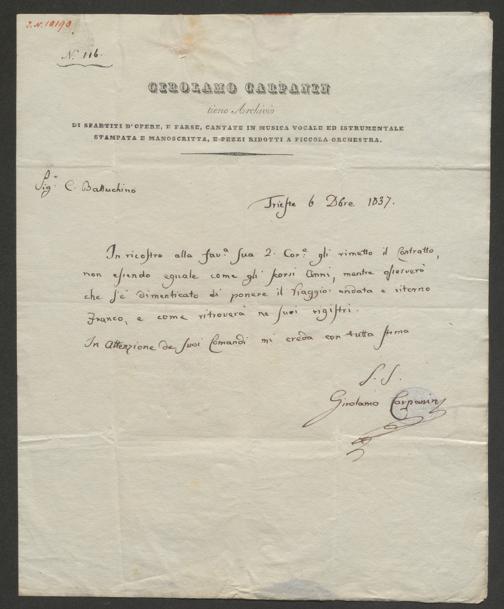 J.N. 10193
N.° 116.
GIROLAMO CARPANIN
tiene Archivio
DI SPARTITI D'OPERE, E FARSE, CANTATE IN MUSICA VOCALE ED ISTRUMENTALE
STAMPATA E MANOSCRITTA, E PEZZI RIDOTTI A PICCOLA ORCHESTRA.
Sig.r C. Battuchino
Trieste 6 Dbre 1837.
In riscontro alla fav.a Sua 2. Cor.e gli rimetto il Contratto,
non essendo eguale come gli scorsi Anni, mentre osserverò
che s'è dimenticato di ponere il Viaggio andata e ritorno
Franco, e come ritroverà ne suoi registri.
In Attenzione de suoi Comandi mi creda con tutta stima
S. S.
Girolamo Carpanin